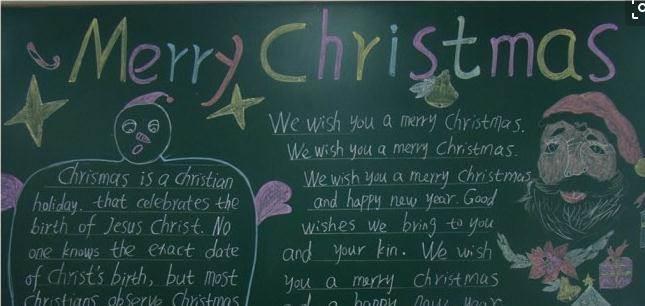 Merry Christmas
Chrismas is a christian
holiday. that celebrates the
birth of Jesus Christ. No
one knows the exact date
of Christ's birth, but most
christians observe Christmas
We wish you a merry Christmas.
We wish you a merry Christmas.
We wish you a merry Christmas
and happy new year. Good
wishes we bring to you
and your kin. We wish
you a merry Christmas
and a happy new year